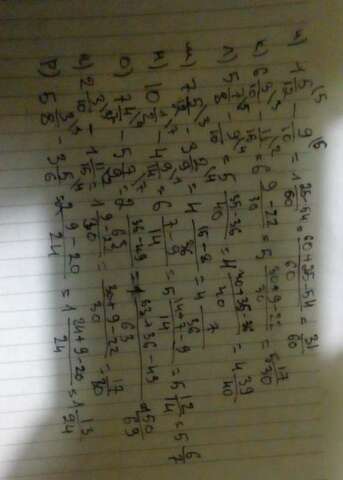 и) 1 5/12 - 9/10 = 1 25-54/60 = 60+25-54/60 = 31/60
к) 6 3/10 - 11/15 = 6 9-22/30 = 5 30+9-22/30 = 5 17/30
л) 5 7/8 - 9/10 = 5 35-36/40 = 4 40+35-36/40 = 4 39/40
м) 7 5/12 - 3 2/9 = 4 15-8/36 = 4 7/36
н) 10 1/2 - 4 9/14 = 6 7-9/14 = 5 14+7-9/14 = 5 12/14 = 5 6/7
о) 7 4/7 - 5 7/9 = 2 36-49/63 = 1 63+36-49/63 = 1 50/63
п) 2 3/10 - 1 11/15 = 1 9-22/30 = 30+9-22/30 = 17/30
р) 5 3/8 - 3 5/6 = 2 9-20/24 = 1 24+9-20/24 = 1 13/24